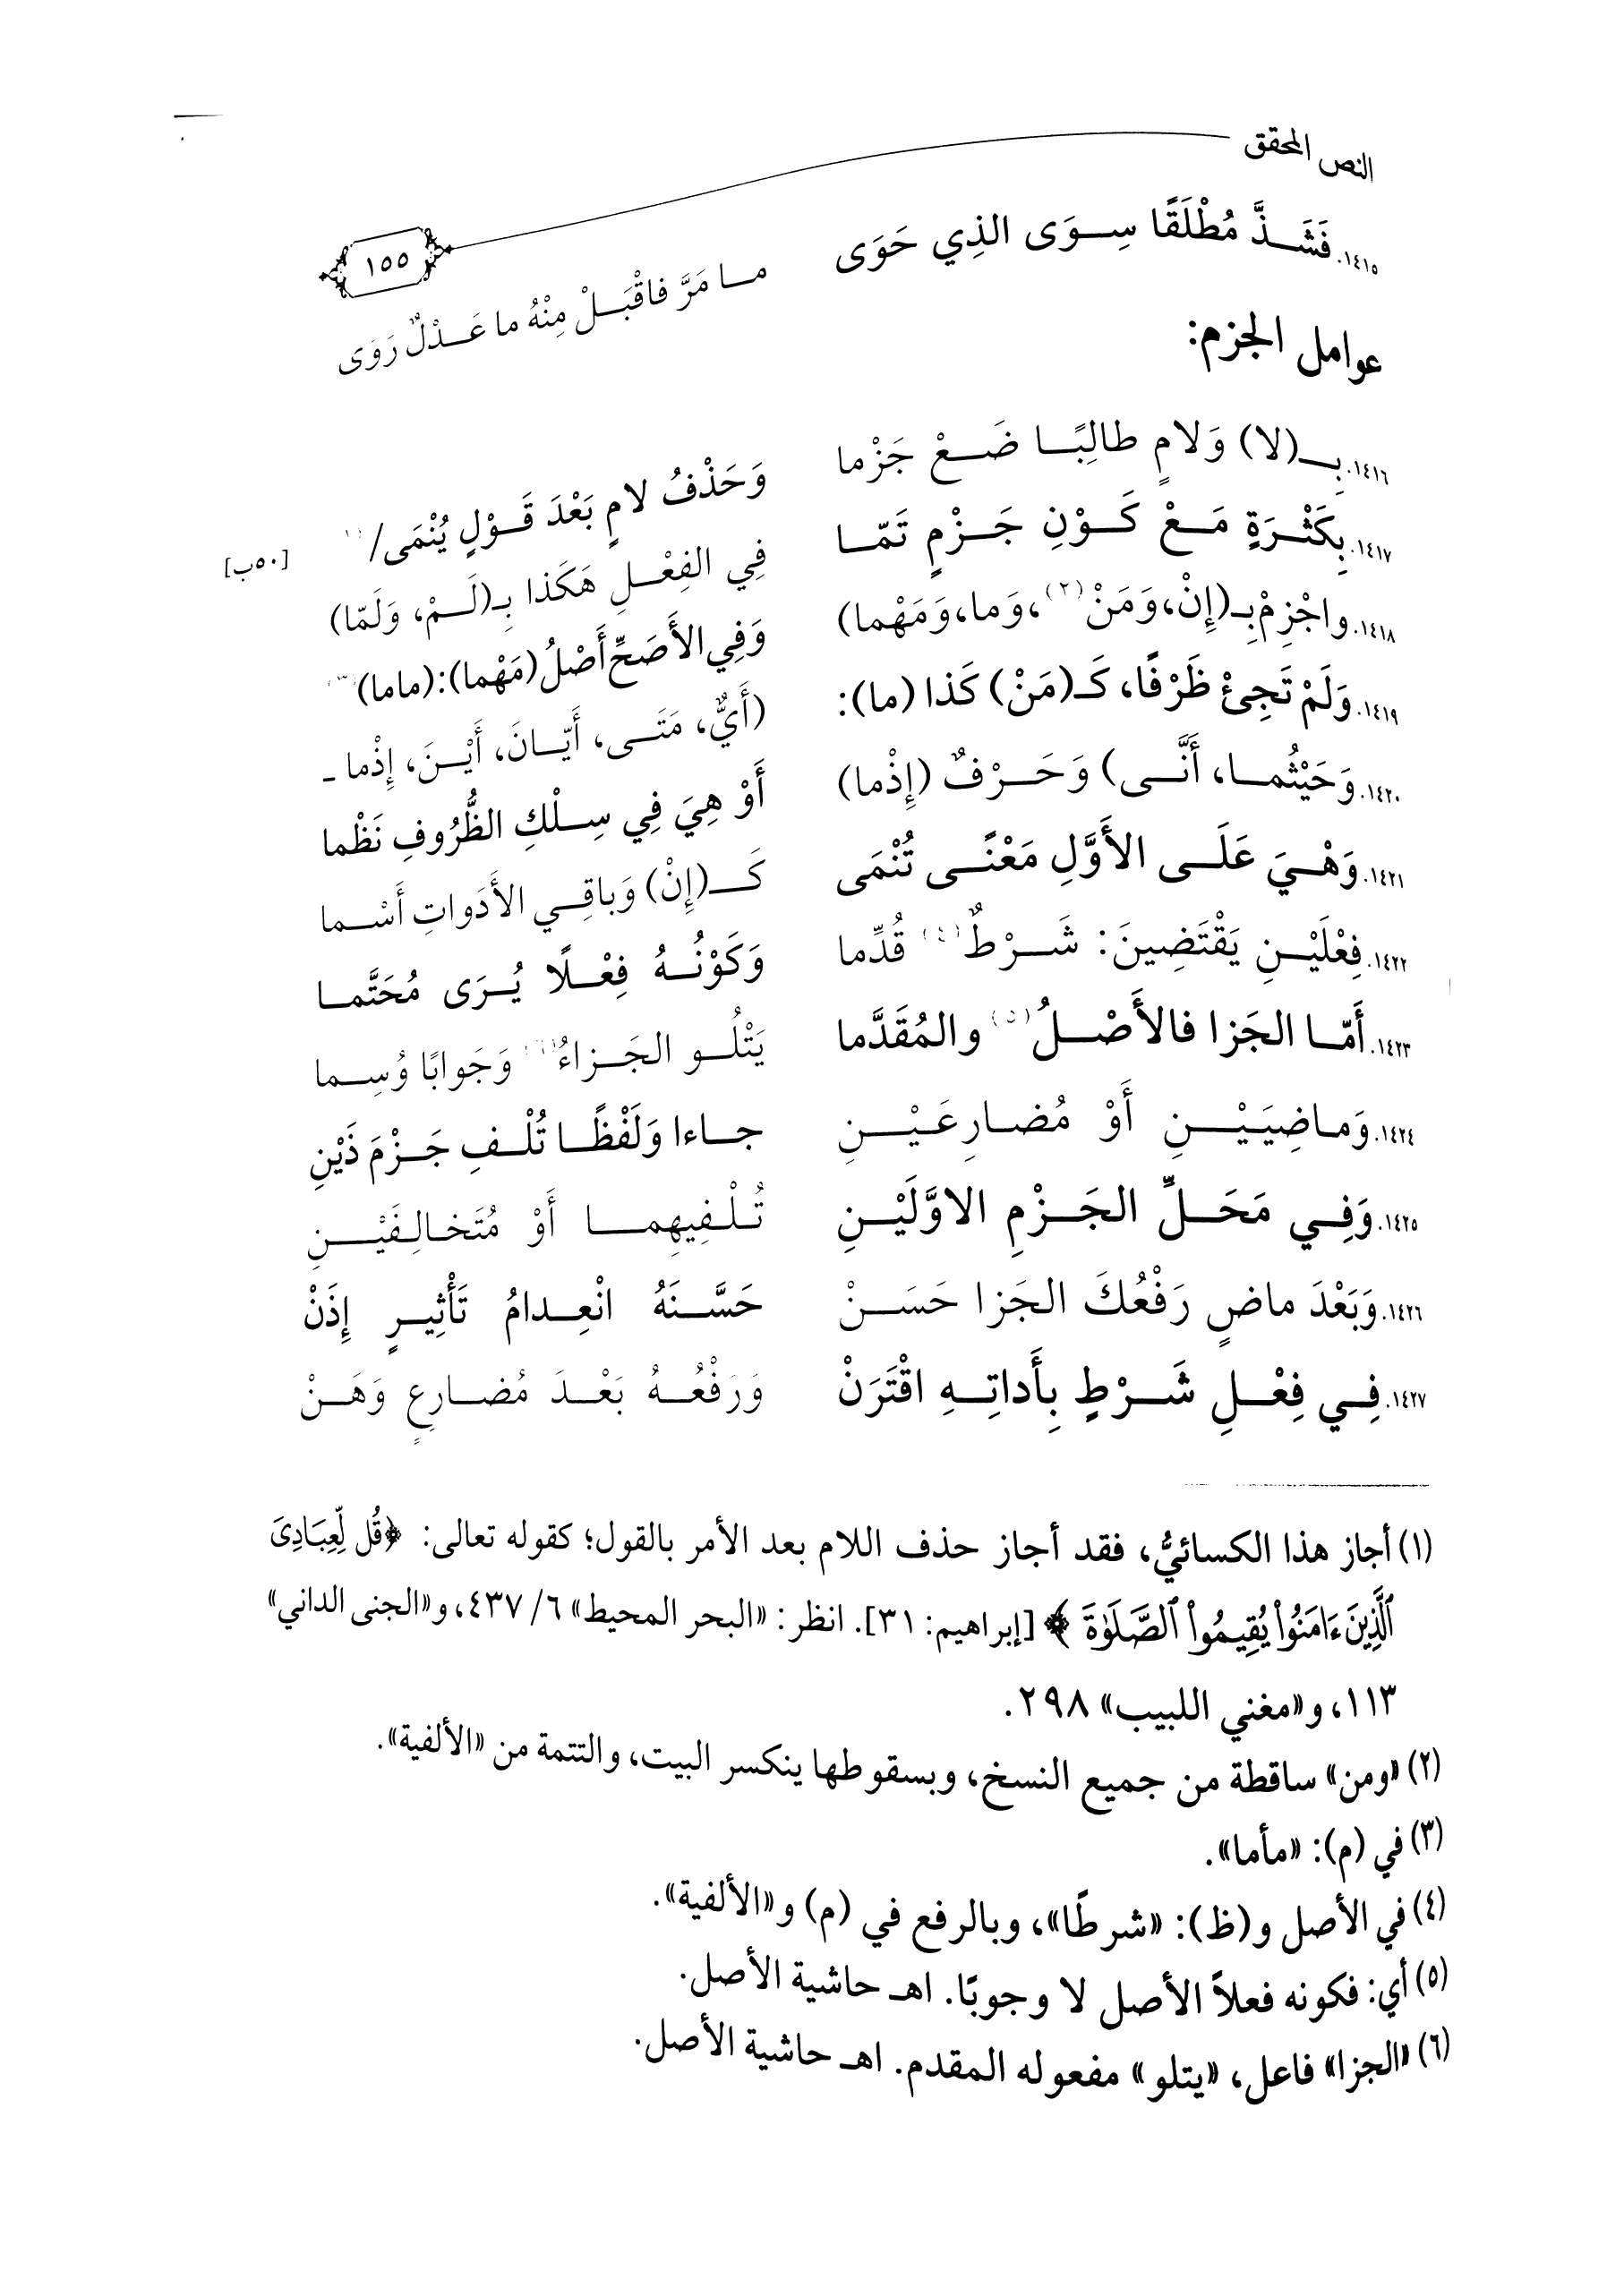 النص المحقق
١٥٥
١٤١٥. فَشَذَّ مُطْلَقًا سِوَى الذِي حَوَى    ما مَرَّ فاقْبَلْ مِنْهُ ما عَدْلٌ رَوَى
عوامل الجزم:
١٤١٦. بِـ(لا) وَلامٍ طالِبًا ضَعْ جَزْما    وَحَذْفُ لامٍ بَعْدَ قَوْلٍ يُنْمَى/(١) [٥٠ب]
١٤١٧. بِكَثْرَةٍ مَعْ كَوْنِ جَزْمٍ تَمّا    فِي الفِعْلِ هَكَذا بِـ(لَمْ، وَلَمّا)
١٤١٨. واجْزِمْ بِـ(إِنْ، وَمَنْ(٢)، وَما، وَمَهْما)    وَفِي الأَصَحِّ أَصْلُ (مَهْما): (ماما)(٣)
١٤١٩. وَلَمْ تَجِئْ ظَرْفًا، كَـ(مَنْ) كَذا (ما):    (أَيٌّ، مَتَى، أَيّانَ، أَيْنَ، إِذْما ـ
١٤٢٠. وَحَيْثُما، أَنَّى) وَحَرْفٌ (إِذْما)    أَوْ هِيَ فِي سِلْكِ الظُّرُوفِ نَظْما
١٤٢١. وَهْيَ عَلَى الأَوَّلِ مَعْنًى تُنْمَى    كَـ(إِنْ) وَباقِي الأَدَواتِ أَسْما
١٤٢٢. فِعْلَيْنِ يَقْتَضِينَ: شَرْطٌ(٤) قُدِّما    وَكَوْنُهُ فِعْلًا يُرَى مُحَتَّما
١٤٢٣. أَمّا الجَزا فالأَصْلُ(٥) والمُقَدَّما    يَتْلُو الجَزاءُ(٦) وَجَوابًا وُسِما
١٤٢٤. وَماضِيَيْنِ أَوْ مُضارِعَيْنِ    جاءا وَلَفْظًا تُلْفِ جَزْمَ ذَيْنِ
١٤٢٥. وَفِي مَحَلِّ الجَزْمِ الاوَّلَيْنِ    تُلْفِيهِما أَوْ مُتَخالِفَيْنِ
١٤٢٦. وَبَعْدَ ماضٍ رَفْعُكَ الجَزا حَسَنْ    حَسَّنَهُ انْعِدامُ تَأْثِيرٍ إِذَنْ
١٤٢٧. فِي فِعْلِ شَرْطٍ بِأَداتِهِ اقْتَرَنْ    وَرَفْعُهُ بَعْدَ مُضارِعٍ وَهَنْ
(١) أجاز هذا الكسائيُّ، فقد أجاز حذف اللام بعد الأمر بالقول؛ كقوله تعالى: ﴿قُل لِّعِبَادِىَ
ٱلَّذِينَ ءَامَنُوا۟ يُقِيمُوا۟ ٱلصَّلَوٰةَ﴾ [إبراهيم: ٣١]. انظر: «البحر المحيط» ٦/ ٤٣٧، و«الجنى الداني»
١١٣، و«مغني اللبيب» ٢٩٨.
(٢) «ومن» ساقطة من جميع النسخ، وبسقوطها ينكسر البيت، والتتمة من «الألفية».
(٣) في (م): «مأما».
(٤) في الأصل و(ظ): «شرطًا»، وبالرفع في (م) و«الألفية».
(٥) أي: فكونه فعلاً الأصل لا وجوبًا. اهـ حاشية الأصل.
(٦) «الجزا» فاعل، «يتلو» مفعوله المقدم. اهـ حاشية الأصل.